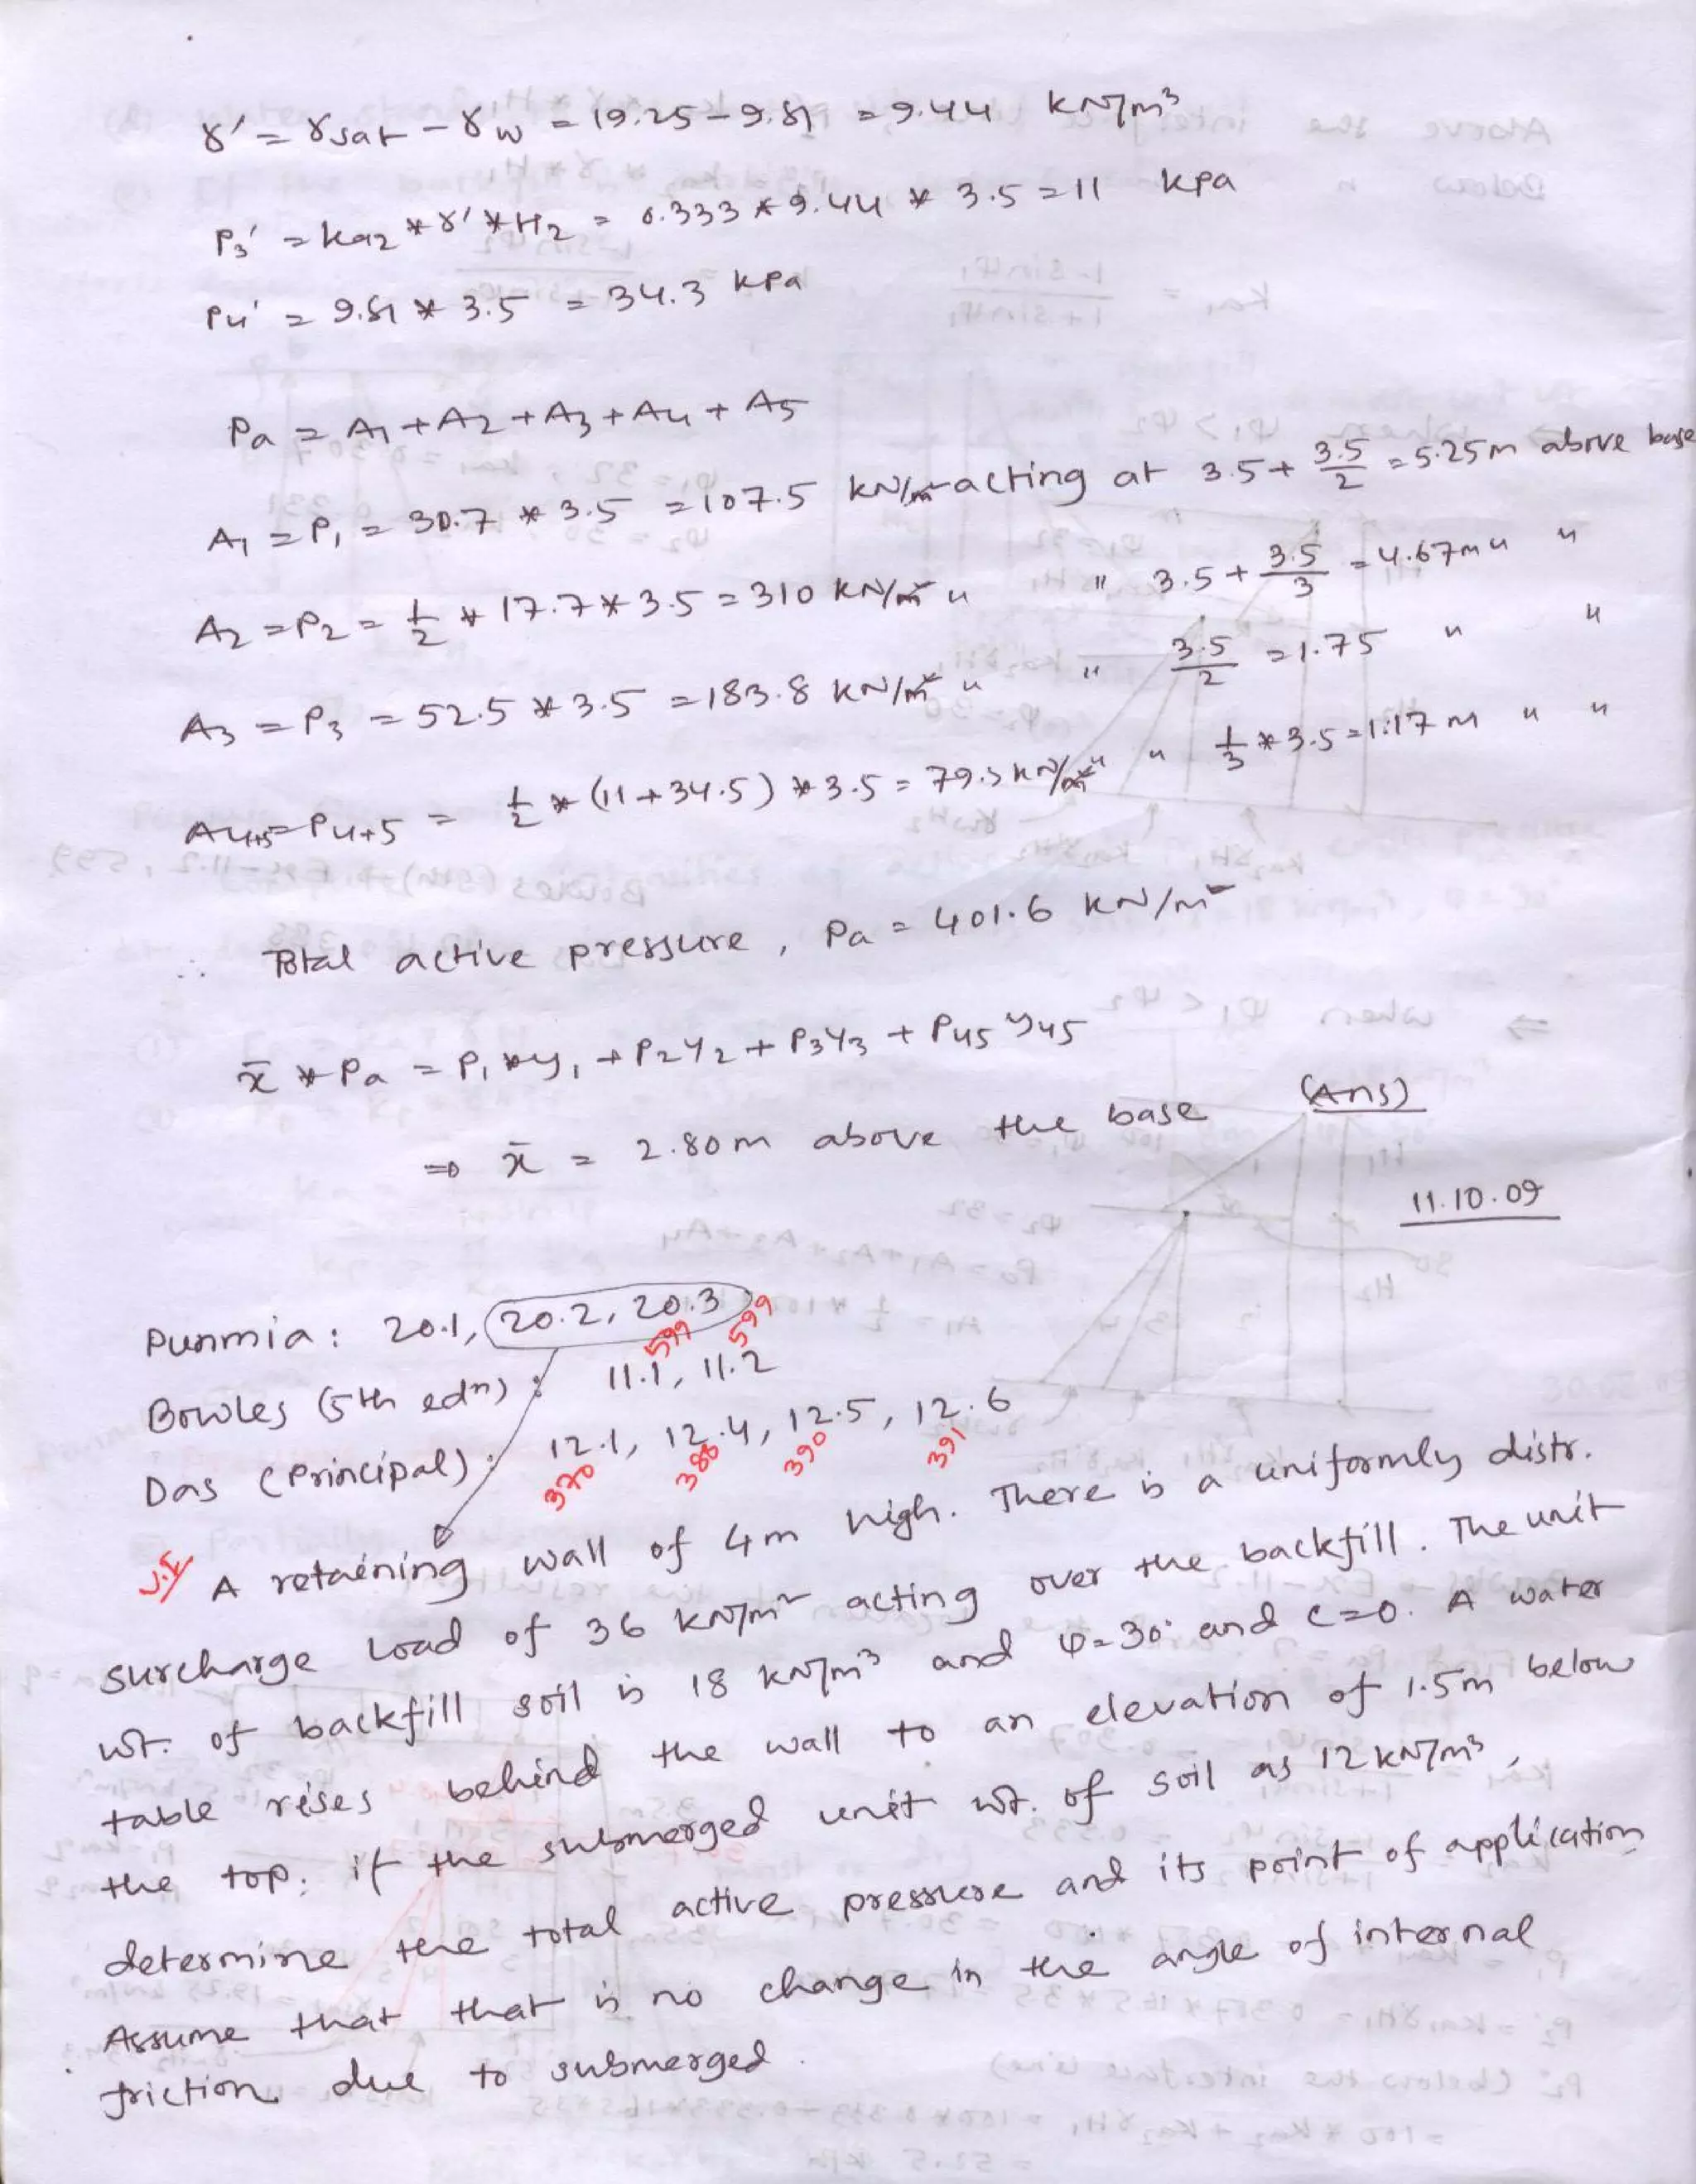 γ' = γsat - γw = 19.25 - 9.81 = 9.44 kN/m³
P3' = ka2 * γ' * H2 = 0.333 * 9.44 * 3.5 = 11 kPa
P4' = 9.81 * 3.5 = 34.3 kPa
Pa = A1 + A2 + A3 + A4 + A5
A1 = P1 = 30.7 * 3.5 = 107.5 kN/m acting at 3.5 + 3.5/2 = 5.25m above base
A2 = P2 = 1/2 * 17.7 * 3.5 = 310 kN/m " " 3.5 + 3.5/3 = 4.67m " "
A3 = P3 = 52.5 * 3.5 = 183.8 kN/m " " 3.5/2 = 1.75 " "
A4+5 = P4+5 = 1/2 * (11 + 34.5) * 3.5 = 79.3 kN/m " " 1/3 * 3.5 = 1.17 m " "
∴ Total active pressure, Pa = 401.6 kN/m²
x̄ * Pa = P1 * y1 + P2y2 + P3y3 + P45 y45
⇒ x̄ = 2.80m above the base (Ans)
11.10.09
Punmia: 20.1, 20.2, 20.3
599 599
Bowles (5th edn): 11.1, 11.2
Das (Principal): 12.1, 12.4, 12.5, 12.6
370 388 390 391
V.I A retaining wall of 4m high. There is a uniformly distr.
surcharge load of 36 kN/m² acting over the backfill. The unit
wt. of backfill soil is 18 kN/m³ and φ=30° and c=0. A water
table rises behind the wall to an elevation of 1.5m below
the top. if the submerged unit wt. of soil as 12 kN/m³,
determine the total active pressure and its point of application
Assume that that is no change in the angle of internal
friction due to submerged.